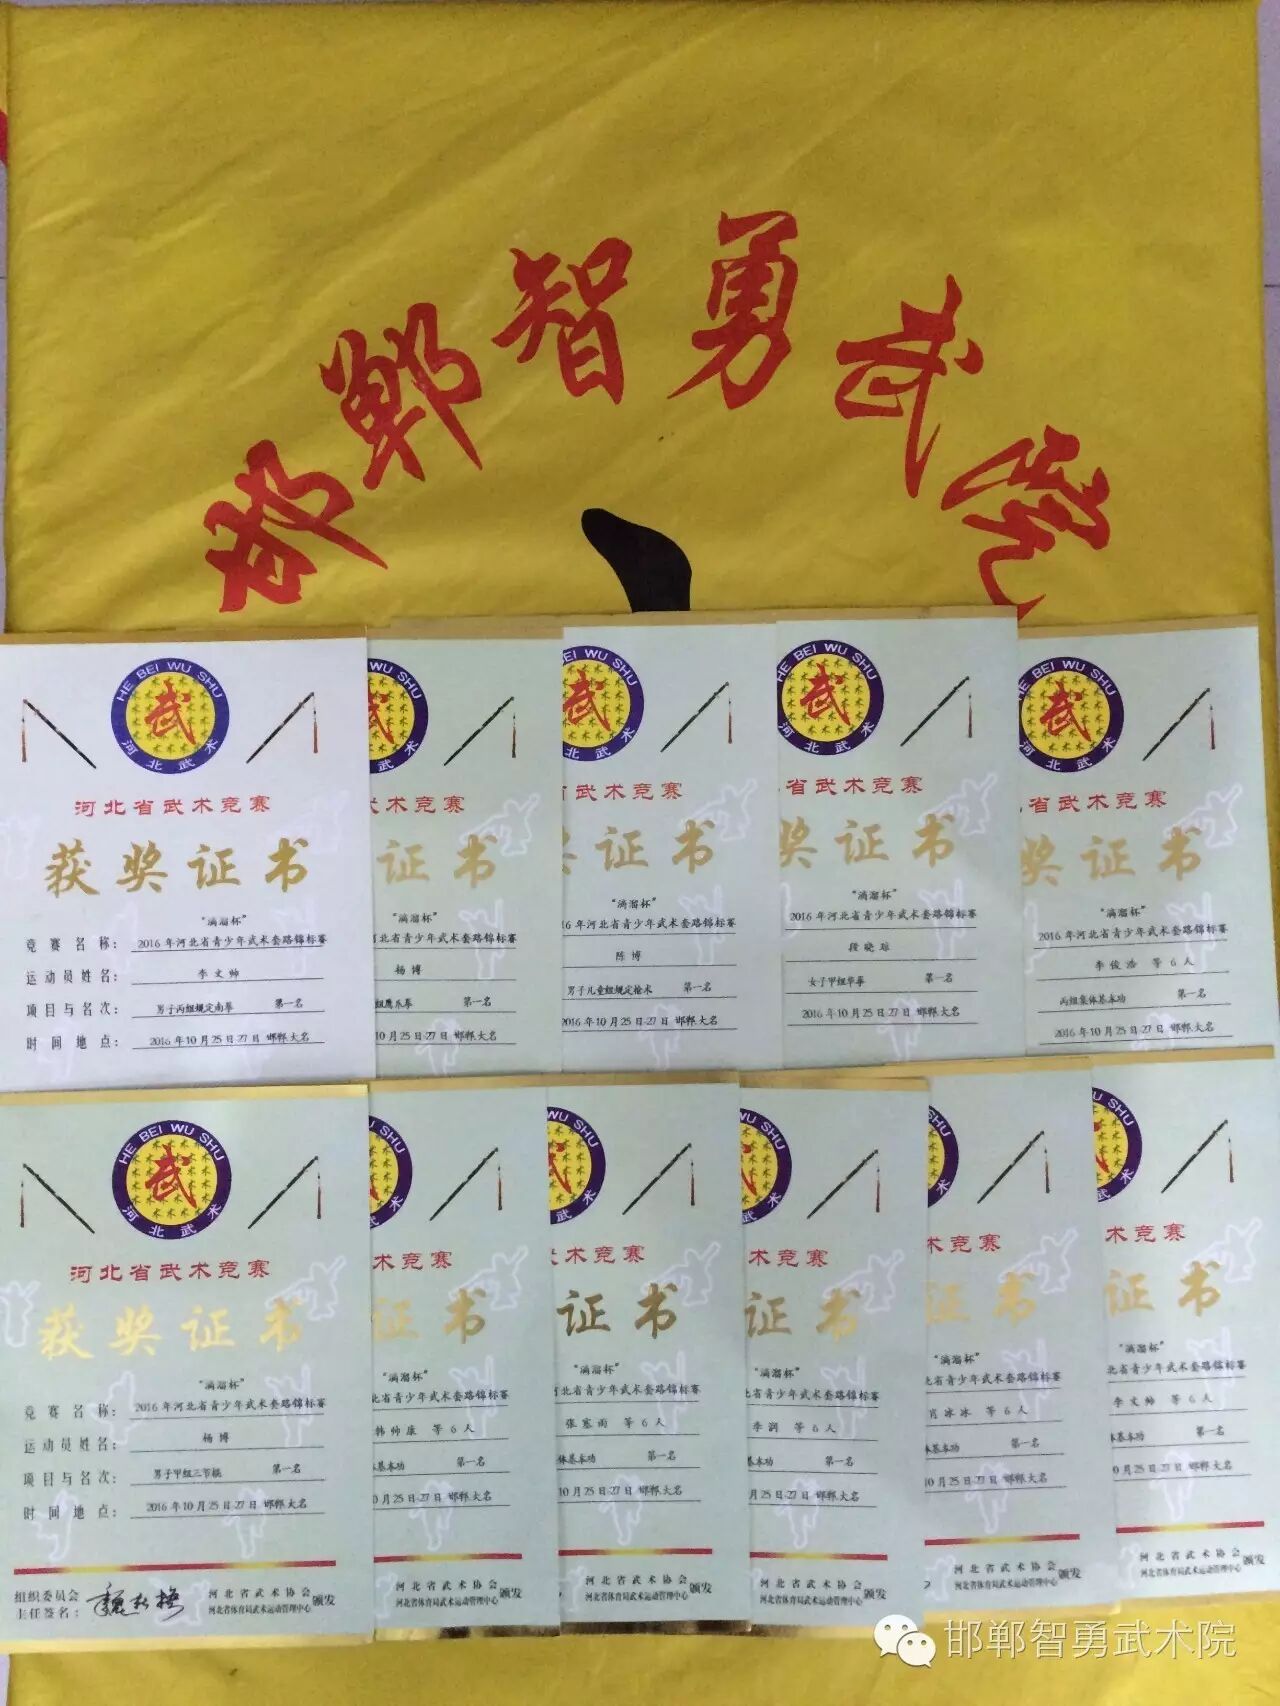 邯郸智勇武术院
HE BEI WU SHU
武
河北武术
河北省武术竞赛
获奖证书
"滴溜杯"
竞赛名称: 2016年河北省青少年武术套路锦标赛
运动员姓名: 李文帅
项目与名次: 男子丙组规定南拳 第一名
时间地点: 2016年10月25日-27日 邯郸大名
武术竞赛
证书
"滴溜杯"
河北省青少年武术套路锦标赛
杨博
组鹰爪拳 第一名
10月25日-27日 邯郸大名
BEI WU SHU
武术
武术竞赛
奖证书
"滴溜杯"
16年河北省青少年武术套路锦标赛
陈博
男子儿童组规定枪术 第一名
2016年10月25日-27日 邯郸大名
HE BEI WU SHU
武
河北武术
省武术竞赛
奖证书
"滴溜杯"
2016年河北省青少年武术套路锦标赛
段晓琼
女子甲组华拳 第一名
2016年10月25日-27日 邯郸大名
HE BEI WU SHU
武
河北武术
省武术竞赛
奖证书
"滴溜杯"
2016年河北省青少年武术套路锦标赛
李俊浩 等6人
丙组集体基本功 第一名
2016年10月25日-27日 邯郸大名
HE BEI WU SHU
武
河北武术
河北省武术竞赛
获奖证书
"滴溜杯"
竞赛名称: 2016年河北省青少年武术套路锦标赛
运动员姓名: 杨博
项目与名次: 男子甲组三节棍 第一名
时间地点: 2016年10月25日-27日 邯郸大名
组织委员会
主任签名:
河北省武术协会
河北省体育局武术运动管理中心 颁发
术竞赛
证书
"滴溜杯"
北省青少年武术套路锦标赛
韩帅康 等6人
基本功 第一名
0月25日-27日 邯郸大名
河北省武术协会
河北省体育局武术运动管理中心 颁发
术竞赛
证书
"滴溜杯"
河北省青少年武术套路锦标赛
张惠雨 等6人
体基本功 第一名
10月25日-27日 邯郸大名
河北省武术协会
河北省体育局武术运动管理中心 颁发
术竞赛
证书
"滴溜杯"
北省青少年武术套路锦标赛
李润 等6人
基本功 第一名
月25日-27日 邯郸大名
河北省武术协会
河北省体育局武术运动管理中心 颁发
术竞赛
证书
"滴溜杯"
北省青少年武术套路锦标赛
肖冰冰 等6人
体基本功 第一名
10月25日-27日 邯郸大名
河北省武术协会
河北省体育局武术运动管理中心 颁发
术竞赛
证书
"滴溜杯"
北省青少年武术套路锦标赛
李文帅 等6人
体基本功 第一名
0月25日-27日 邯郸大名
河北省武术协会
河北省体育局武术运动管理中心 颁发
邯郸智勇武术院